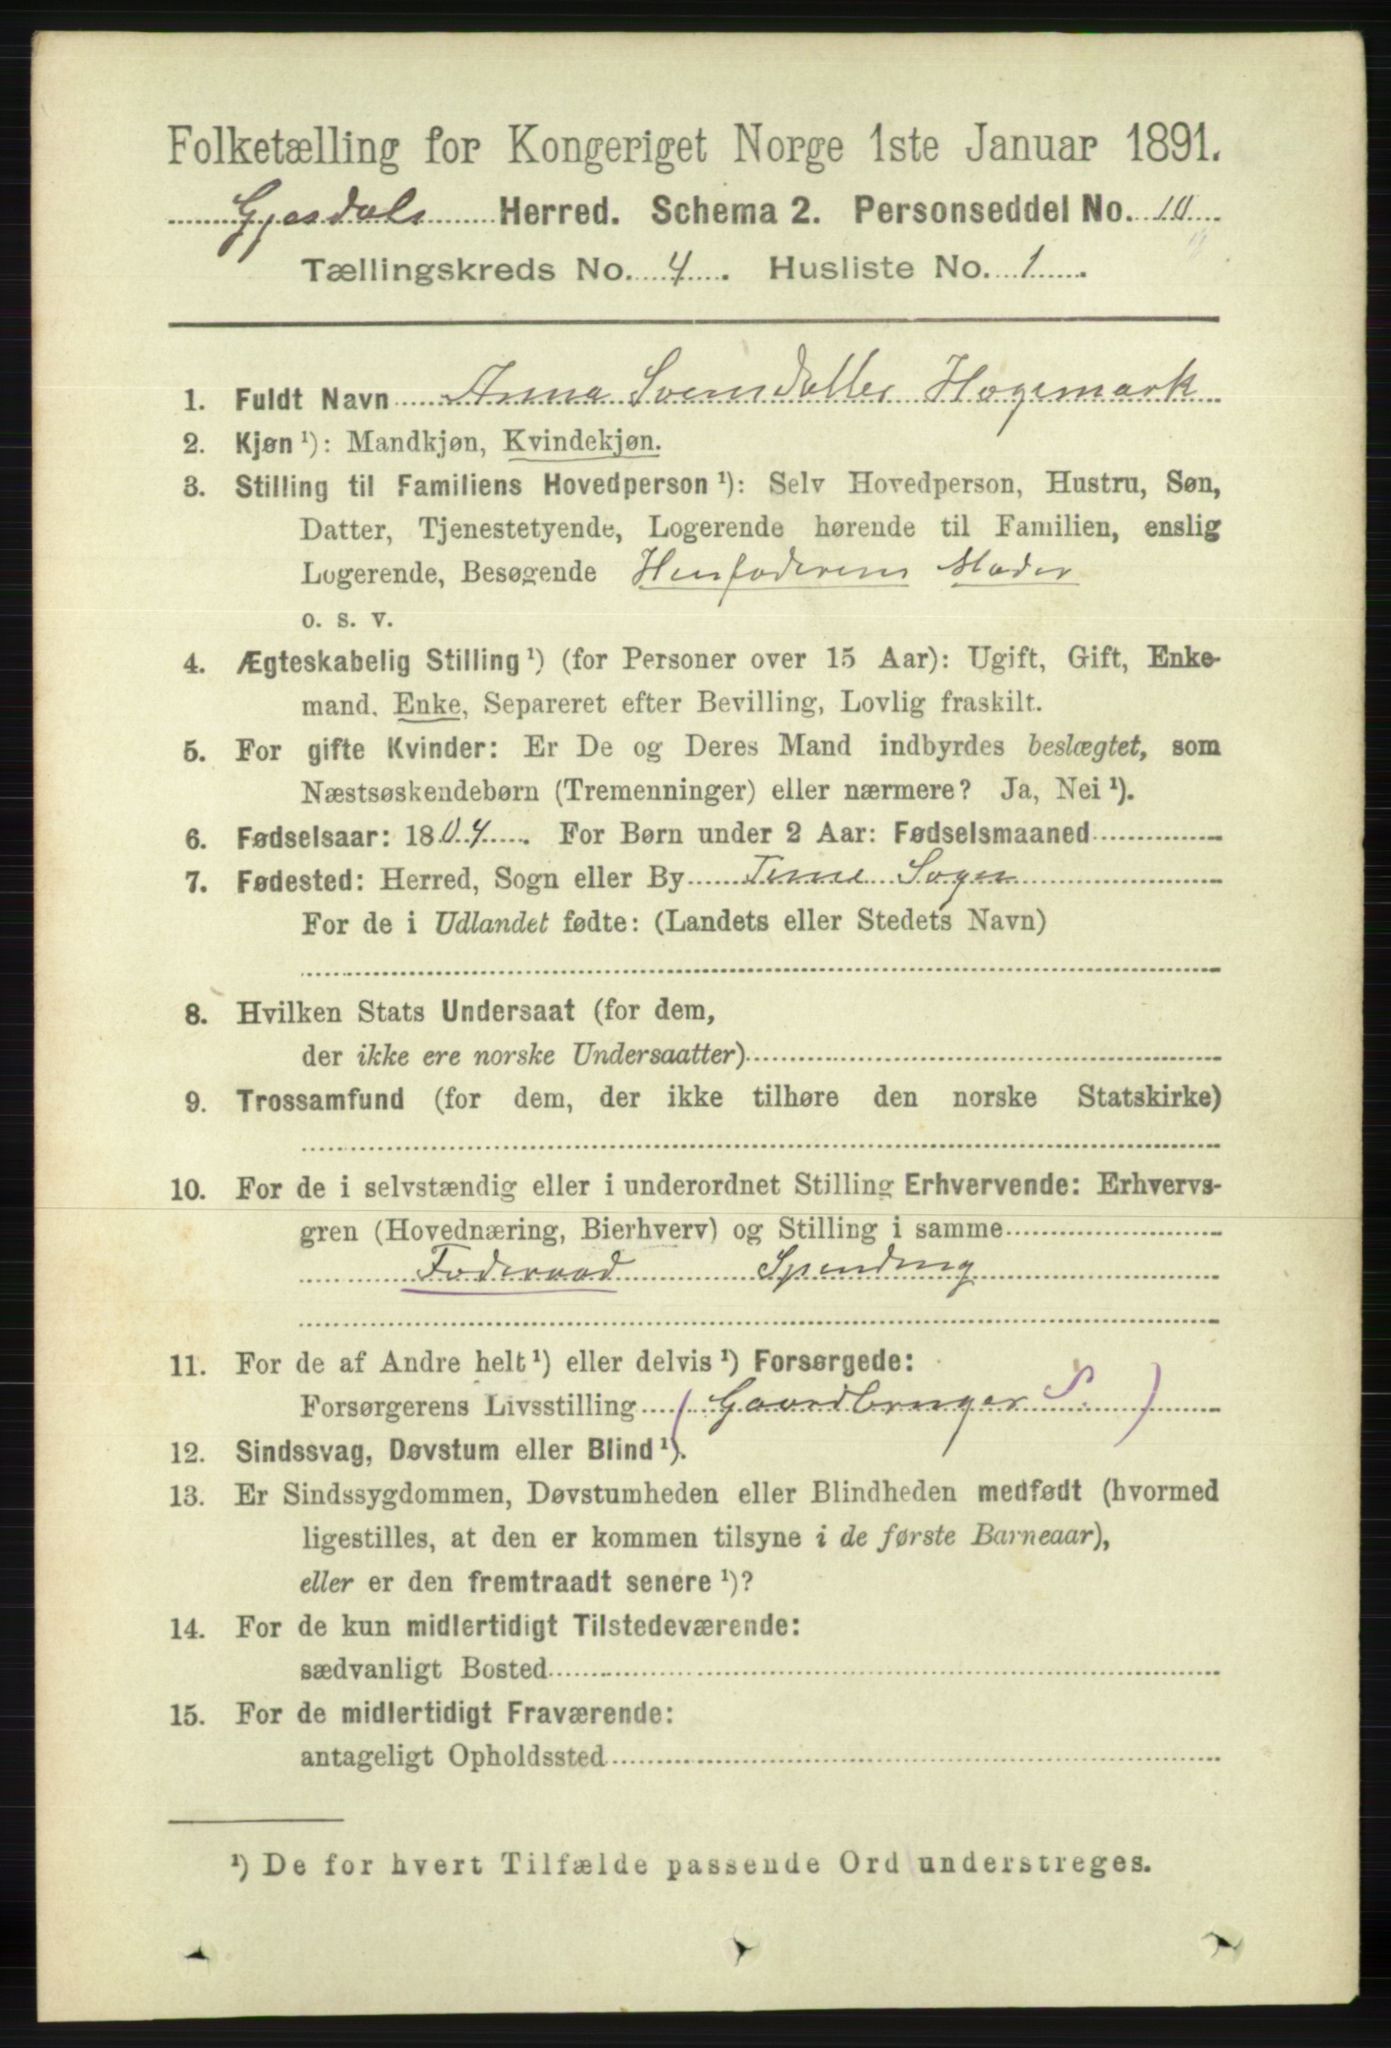 Folketælling for Kongeriget Norge 1ste Januar 1891.
Gjesdals Herred. Schema 2. Personseddel No. 10
Tællingskreds No. 4. Husliste No. 1.
1. Fuldt Navn Anna Svendatter Hogemark
2. Kjøn ¹): Mandkjøn, Kvindekjøn.
3. Stilling til Familiens Hovedperson ¹): Selv Hovedperson, Hustru, Søn,
Datter, Tjenestetyende, Logerende hørende til Familien, enslig
Logerende, Besøgende Husfaderens Moder
o. s. v.
4. Ægteskabelig Stilling ¹) (for Personer over 15 Aar): Ugift, Gift, Enke-
mand, Enke, Separeret efter Bevilling, Lovlig fraskilt.
5. For gifte Kvinder: Er De og Deres Mand indbyrdes beslægtet, som
Næstsøskendebørn (Tremenninger) eller nærmere? Ja, Nei ¹).
6. Fødselsaar: 1804. For Børn under 2 Aar: Fødselsmaaned
7. Fødested: Herred, Sogn eller By Time Sogn
For de i Udlandet fødte: (Landets eller Stedets Navn)
8. Hvilken Stats Undersaat (for dem,
der ikke ere norske Undersaatter)
9. Trossamfund (for dem, der ikke tilhøre den norske Statskirke)
10. For de i selvstændig eller i underordnet Stilling Erhvervende: Erhvervs-
gren (Hovednæring, Bierhverv) og Stilling i samme
Foderaad Spending
11. For de af Andre helt ¹) eller delvis ¹) Forsørgede:
Forsørgerens Livsstilling (Gaardbruger S.)
12. Sindssvag, Døvstum eller Blind ¹).
13. Er Sindssygdommen, Døvstumheden eller Blindheden medfødt (hvormed
ligestilles, at den er kommen tilsyne i de første Barneaar),
eller er den fremtraadt senere ¹)?
14. For de kun midlertidigt Tilstedeværende:
sædvanligt Bosted
15. For de midlertidigt Fraværende:
antageligt Opholdssted
¹) De for hvert Tilfælde passende Ord understreges.